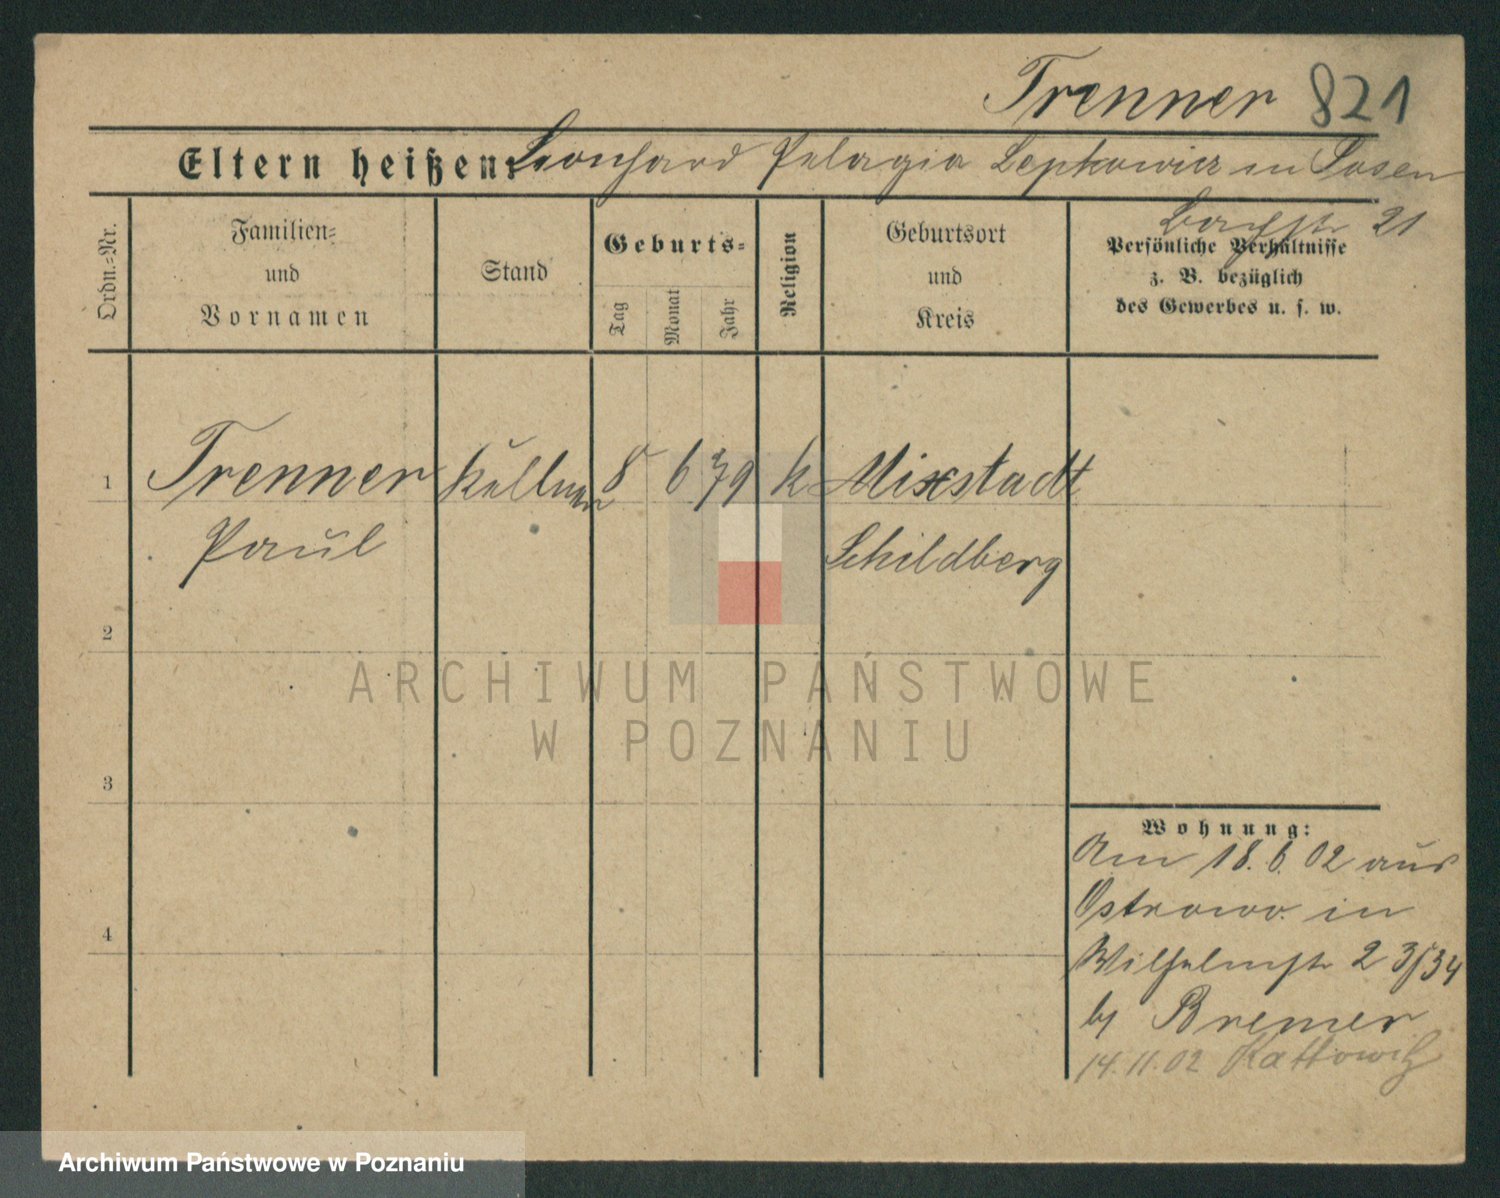 Trenner 821
Eltern heißen: Leonhard Pelagia Lepkowicz in Posen
Bachstr 21
Ordn.-Nr.
Familien-
und
Vornamen
Stand
Geburts-
Tag
Monat
Jahr
Religion
Geburtsort
und
Kreis
Persönliche Verhältnisse
z. B. bezüglich
des Gewerbes u. s. w.
1 Trenner Kellner 8 6 79 k Mixstadt
Paul Schildberg
2
3
4
Wohnung:
Am 18.6.02 aus
Ostrowo in
Wilhelmstr 23/34
by Bremer
14.11.02 Kattowitz
ARCHIWUM PAŃSTWOWE
W POZNANIU
Archiwum Państwowe w Poznaniu